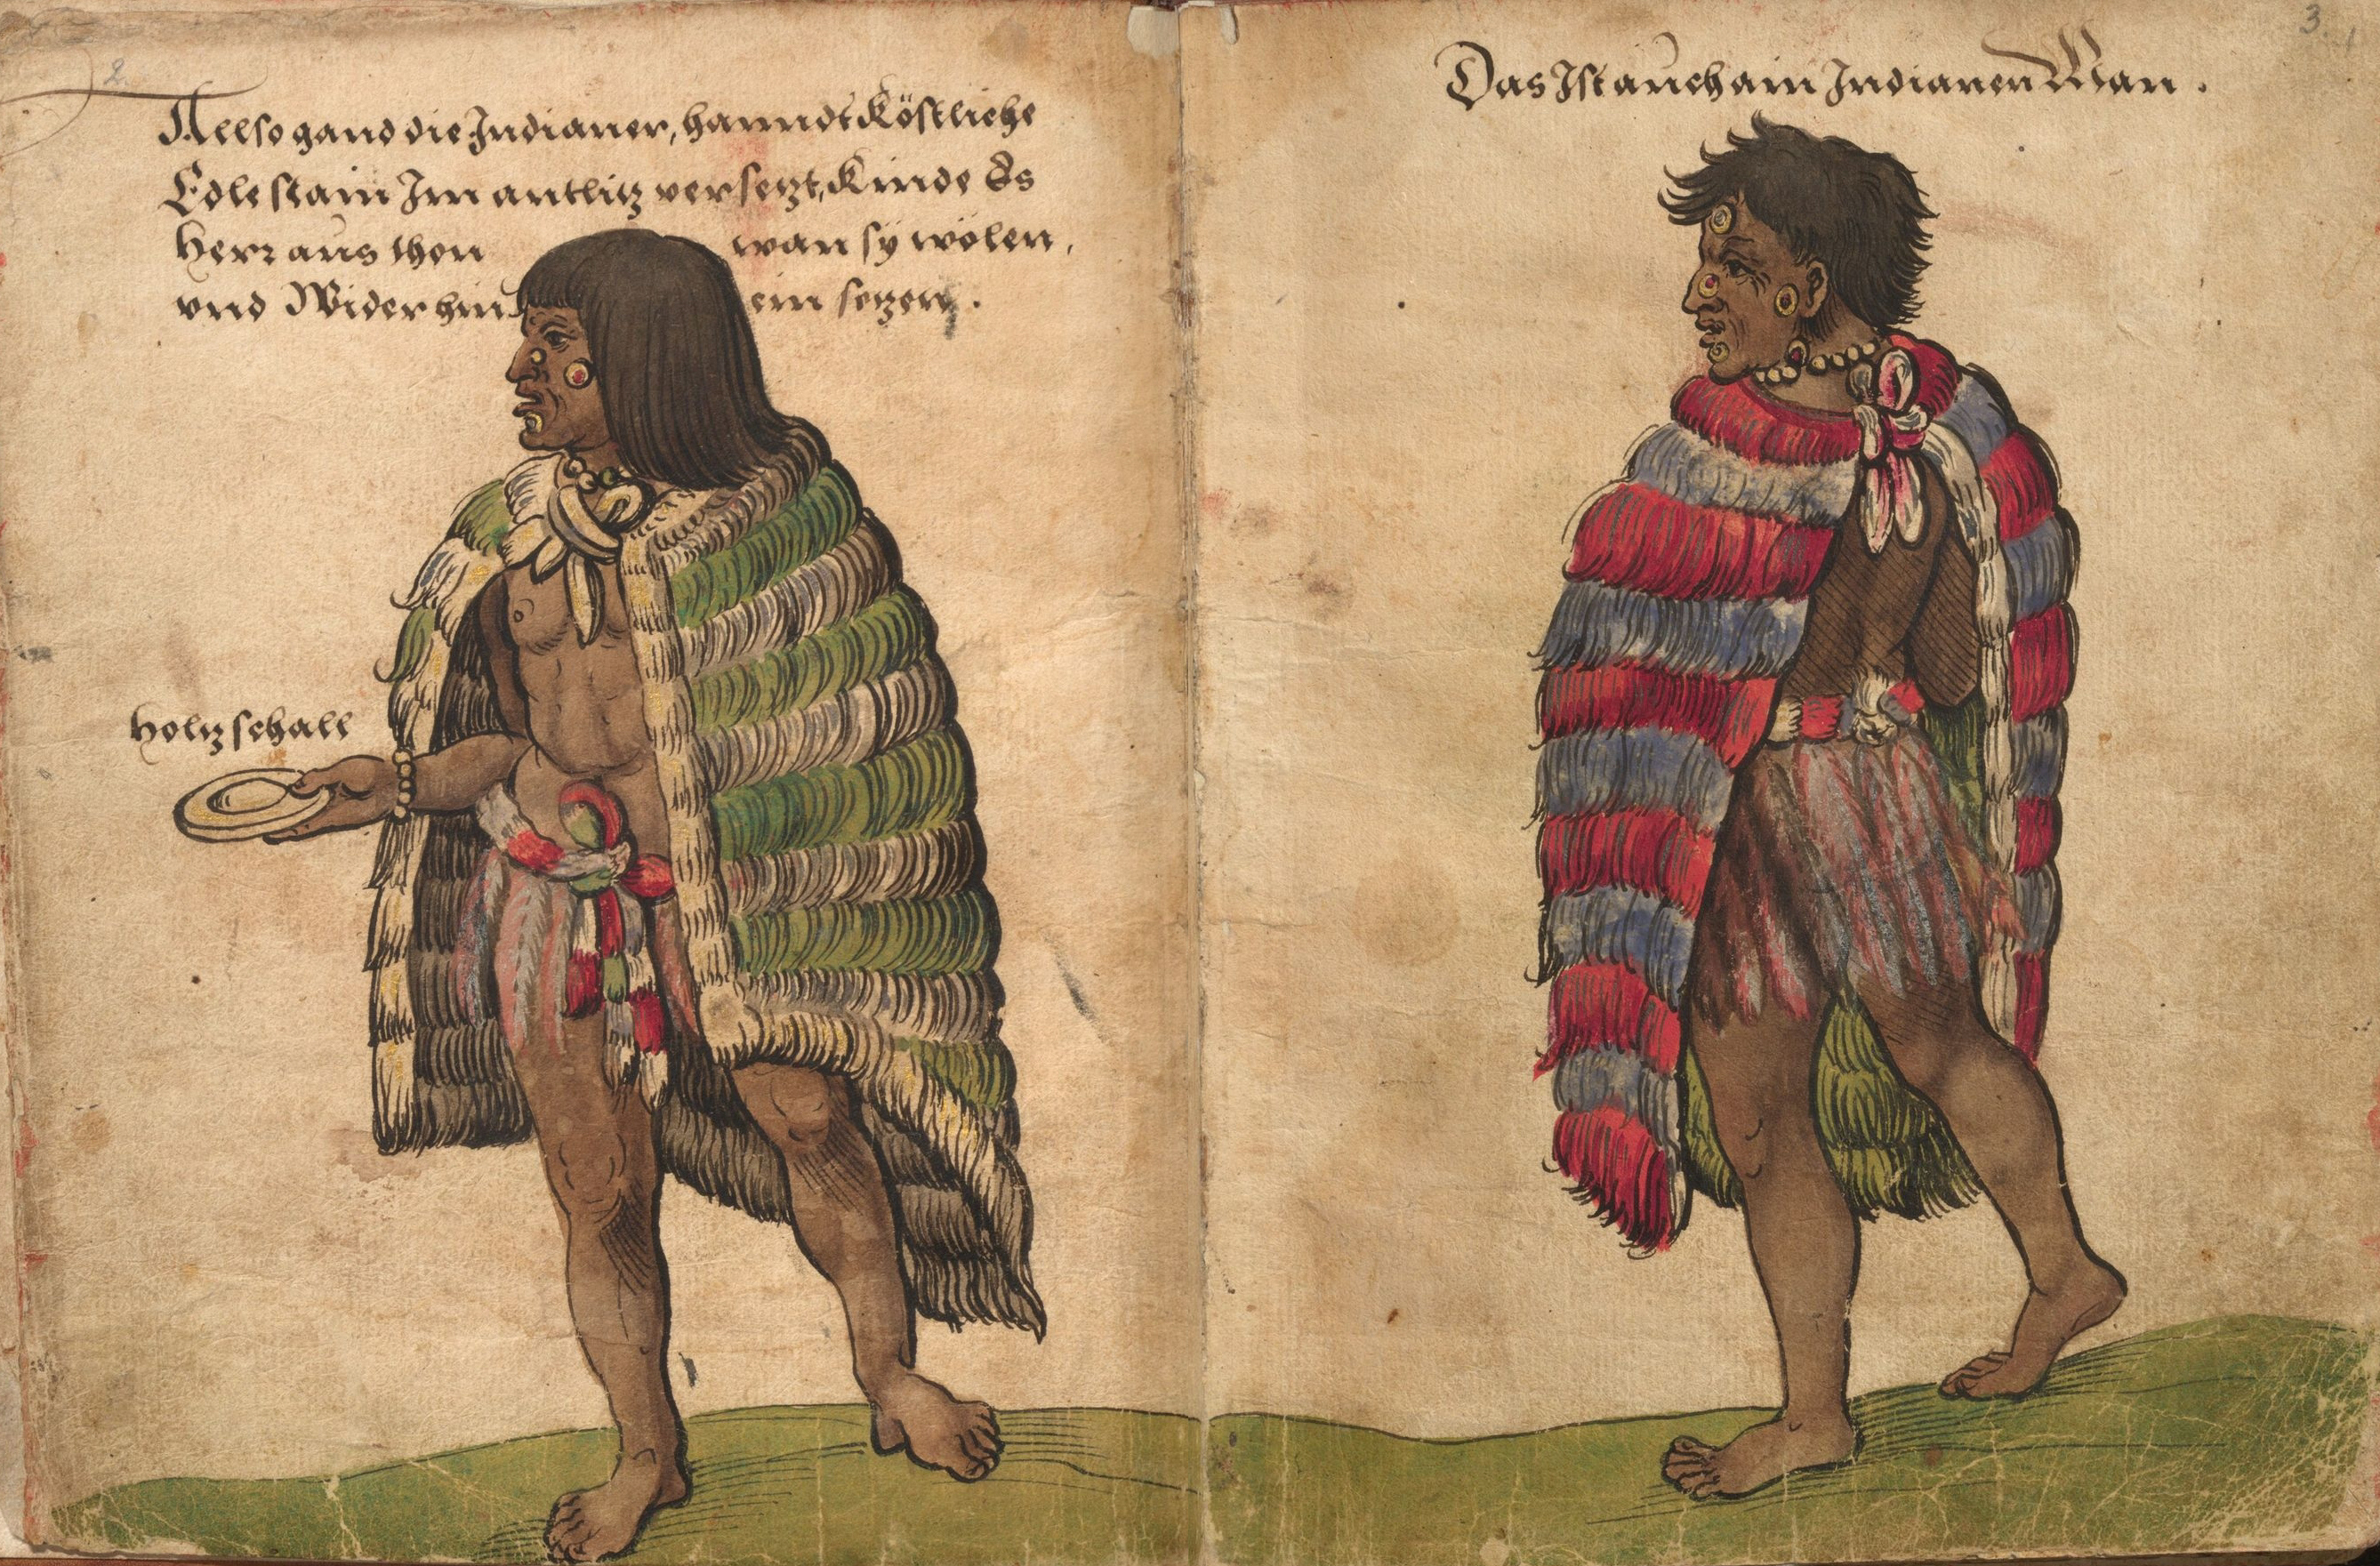 2
Allso gand die Indianer, hanndt köstliche
Edlestain Im antlitz versetzt, kinde Es
herr aus thon wan sy wölen,
vnd Wider hin ein setzen.
holtz schall
3
1
Das Ist auch ain Indianen Man.